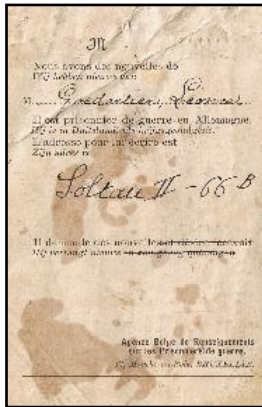 M
Nous avons des nouvelles de
Wij hebben nieuws van
M
Il est prisonnier de guerre en Allemagne.
Hij is in Duitschland als krijgsgevangene.
L'adresse pour lui écrire est
Zijn adres is
Soltau II - 66 B
Il demande des nouvelles et désire recevoir
Hij verlangt nieuws
Agence Belge de Renseignements
sur les Prisonniers de guerre.
BRUXELLES.